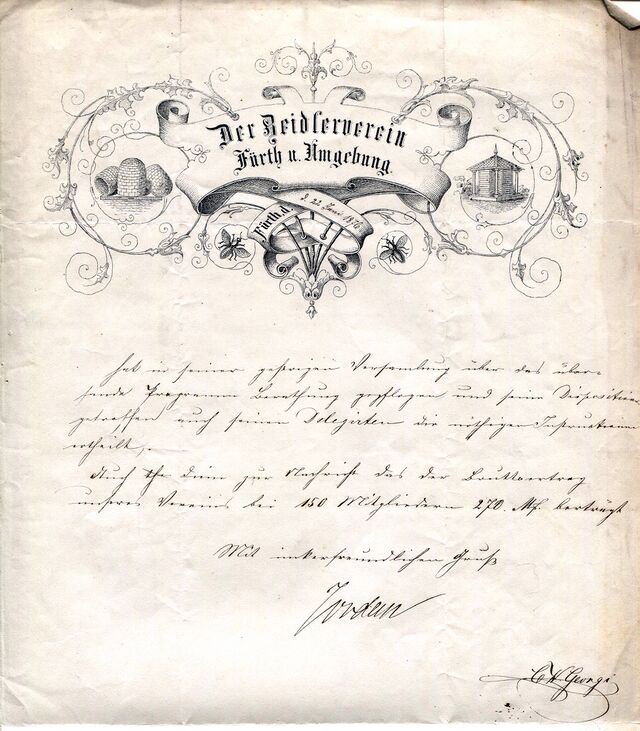 Der Zeidlerverein
Fürth u. Umgebung.
Fürth, d. 22 Juni 1876
hat in seiner gestrigen Versamlung über das über-
sende Programm Berathung gepflogen und seine Disposition
getroffen auch seinen Delegirten die nöthigen Instructionen
ertheilt.
Auch diene zur Nachricht das der Bruttoertrag
unseres Vereins bei 150 Mitgliedern 270 Mk. beträgt
Mit imkerfreundlichen Gruß
Jordan
Georgi